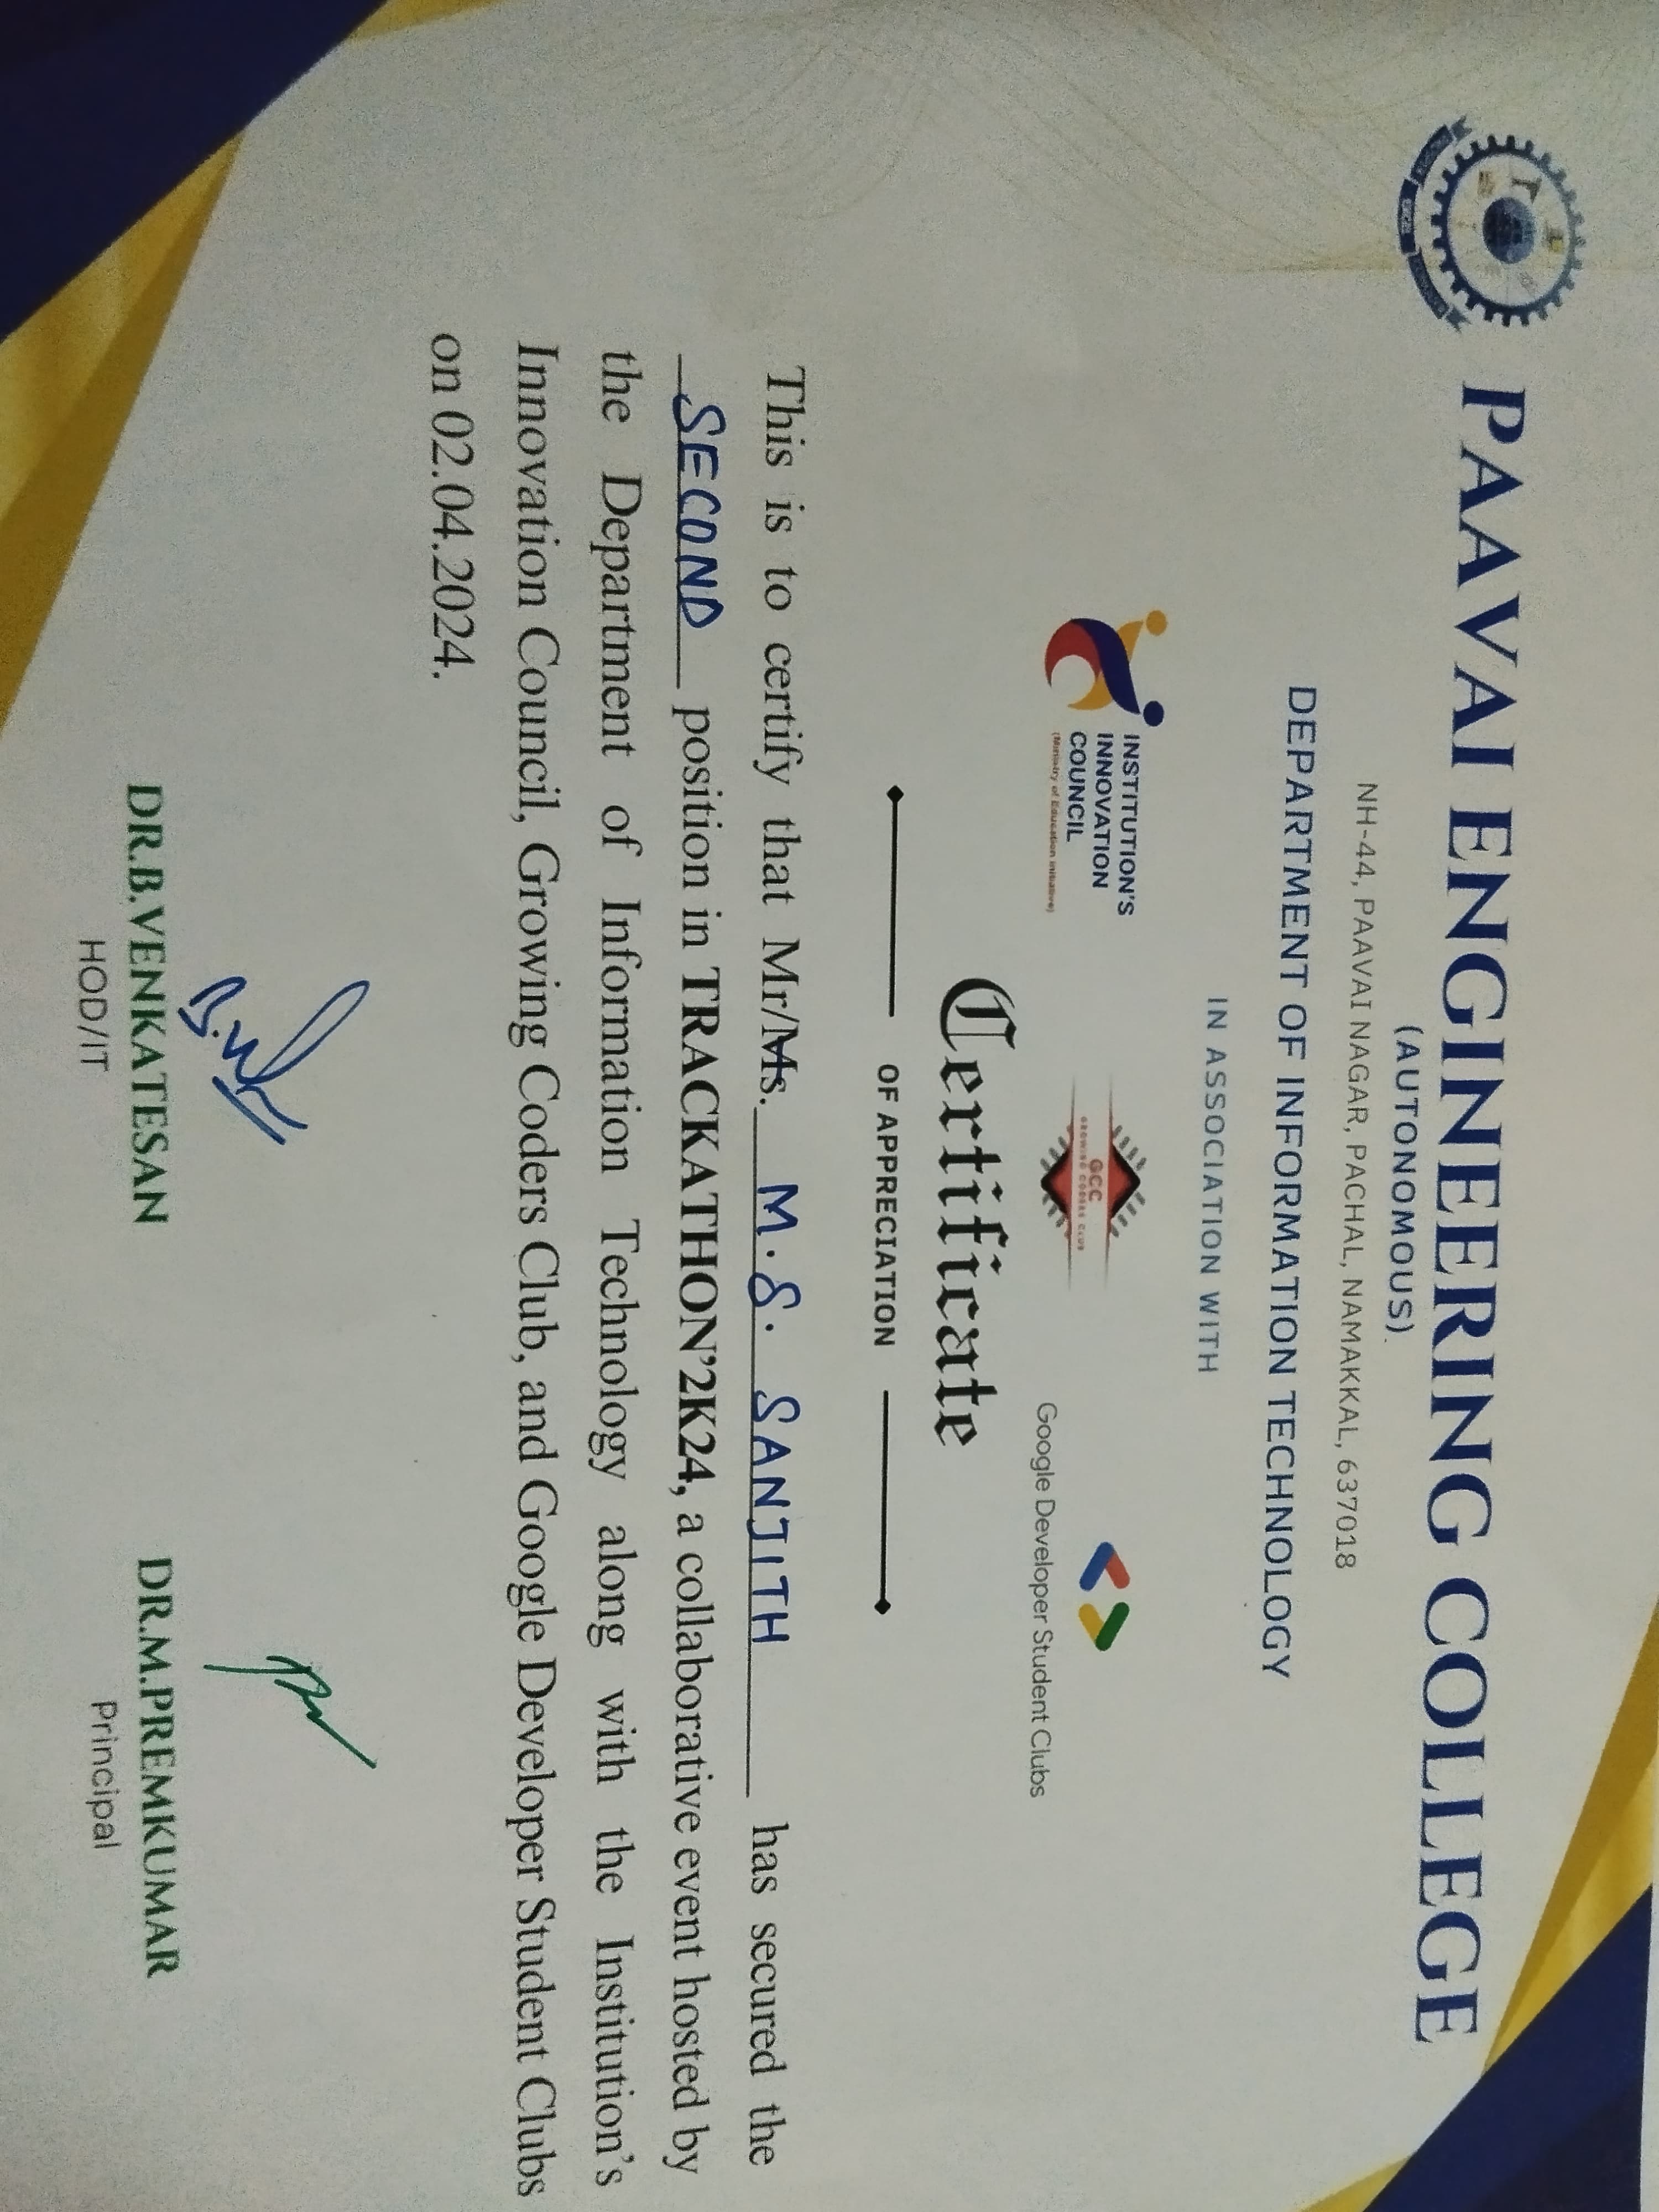 PAAVAI ENGINEERING COLLEGE
(AUTONOMOUS)
NH-44, PAAVAI NAGAR, PACHAL, NAMAKKAL, 637018
DEPARTMENT OF INFORMATION TECHNOLOGY
IN ASSOCIATION WITH
INSTITUTION'S
INNOVATION
COUNCIL
(Ministry of Education Initiative)
GCC
GROWING CODERS CLUB
Google Developer Student Clubs
Certificate
OF APPRECIATION
This is to certify that Mr/Ms. M.S. SANJITH has secured the
SECOND position in TRACKATHON'2K24, a collaborative event hosted by
the Department of Information Technology along with the Institution's
Innovation Council, Growing Coders Club, and Google Developer Student Clubs
on 02.04.2024.
DR.B.VENKATESAN
HOD/IT
DR.M.PREMKUMAR
Principal